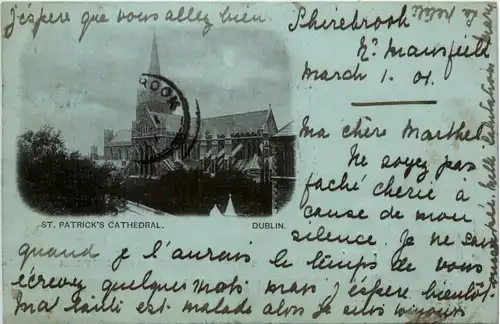 J'espère que vous allez bien.
Shirebrook
Nr Mansfield
March 1. 01.
Ma chère Marthe
Ne soyez pas
faché cherie à
cause de mon
silence. Je ne sais
ROOK
ST. PATRICK'S CATHEDRAL.
DUBLIN.
quand je l'aurais le temps de vous
écrevez quelques mots mais j'espere bientôt.
Ma tante est malade alors je suis toujours